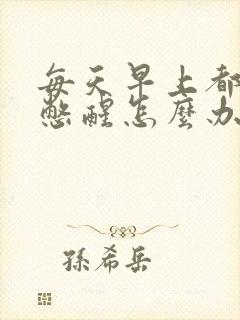 每天早上都
憋醒怎麼办
孫希岳